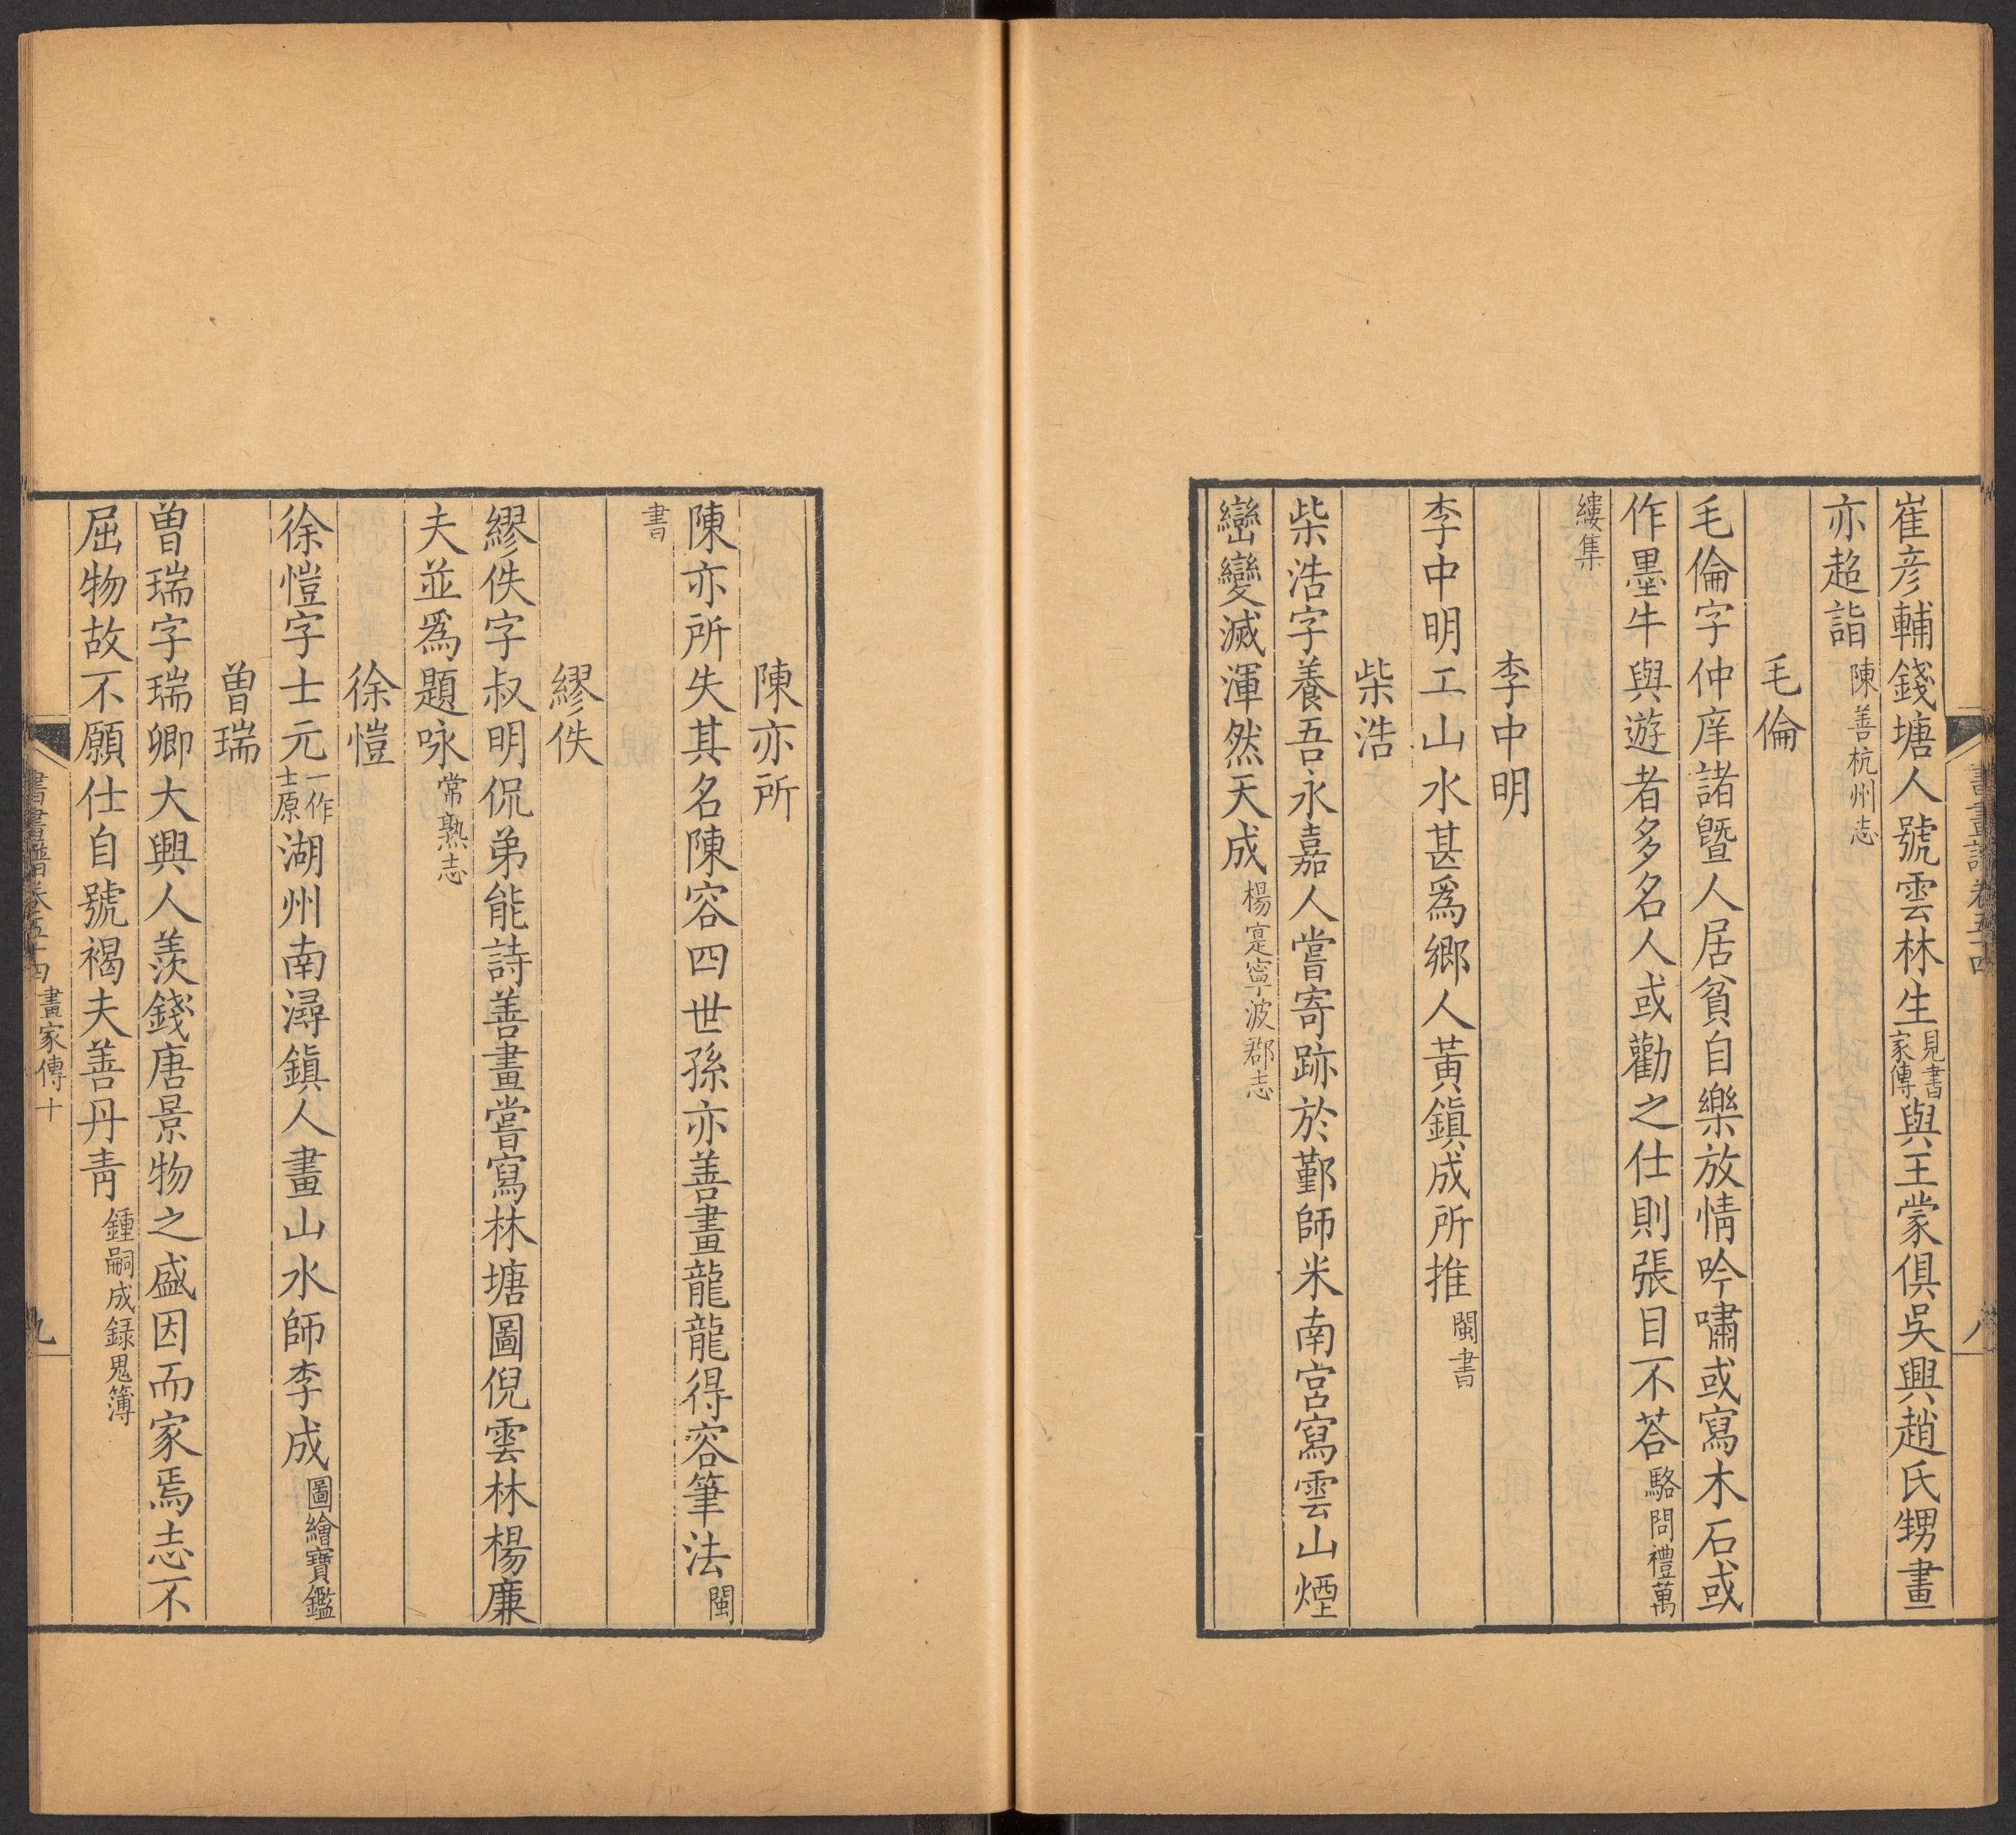 崔彦輔錢塘人號雲林生見書家傳與王蒙俱吳興趙氏甥畫
亦超詣陳善杭州志
毛倫
毛倫字仲庠諸暨人居貧自樂放情吟嘯或寫木石或
作墨牛與遊者多名人或勸之仕則張目不荅駱問禮萬
縷集
李中明
李中明工山水甚爲鄉人黃鎭成所推閩書
柴浩
柴浩字養吾永嘉人嘗寄跡於鄞師米南宮寫雲山煙
巒變滅渾然天成楊寔寧波郡志
陳亦所
陳亦所失其名陳容四世孫亦善畫龍龍得容筆法閩
書
繆佚
繆佚字叔明侃弟能詩善畫嘗寫林塘圖倪雲林楊廉
夫並爲題咏常熟志
徐愷
徐愷字士元一作士原湖州南潯鎭人畫山水師李成圖繪寶鑑
曾瑞
曾瑞字瑞卿大興人羨錢唐景物之盛因而家焉志不
屈物故不願仕自號褐夫善丹靑鍾嗣成録鬼簿
書畫譜卷五十四 畫家傳十 九